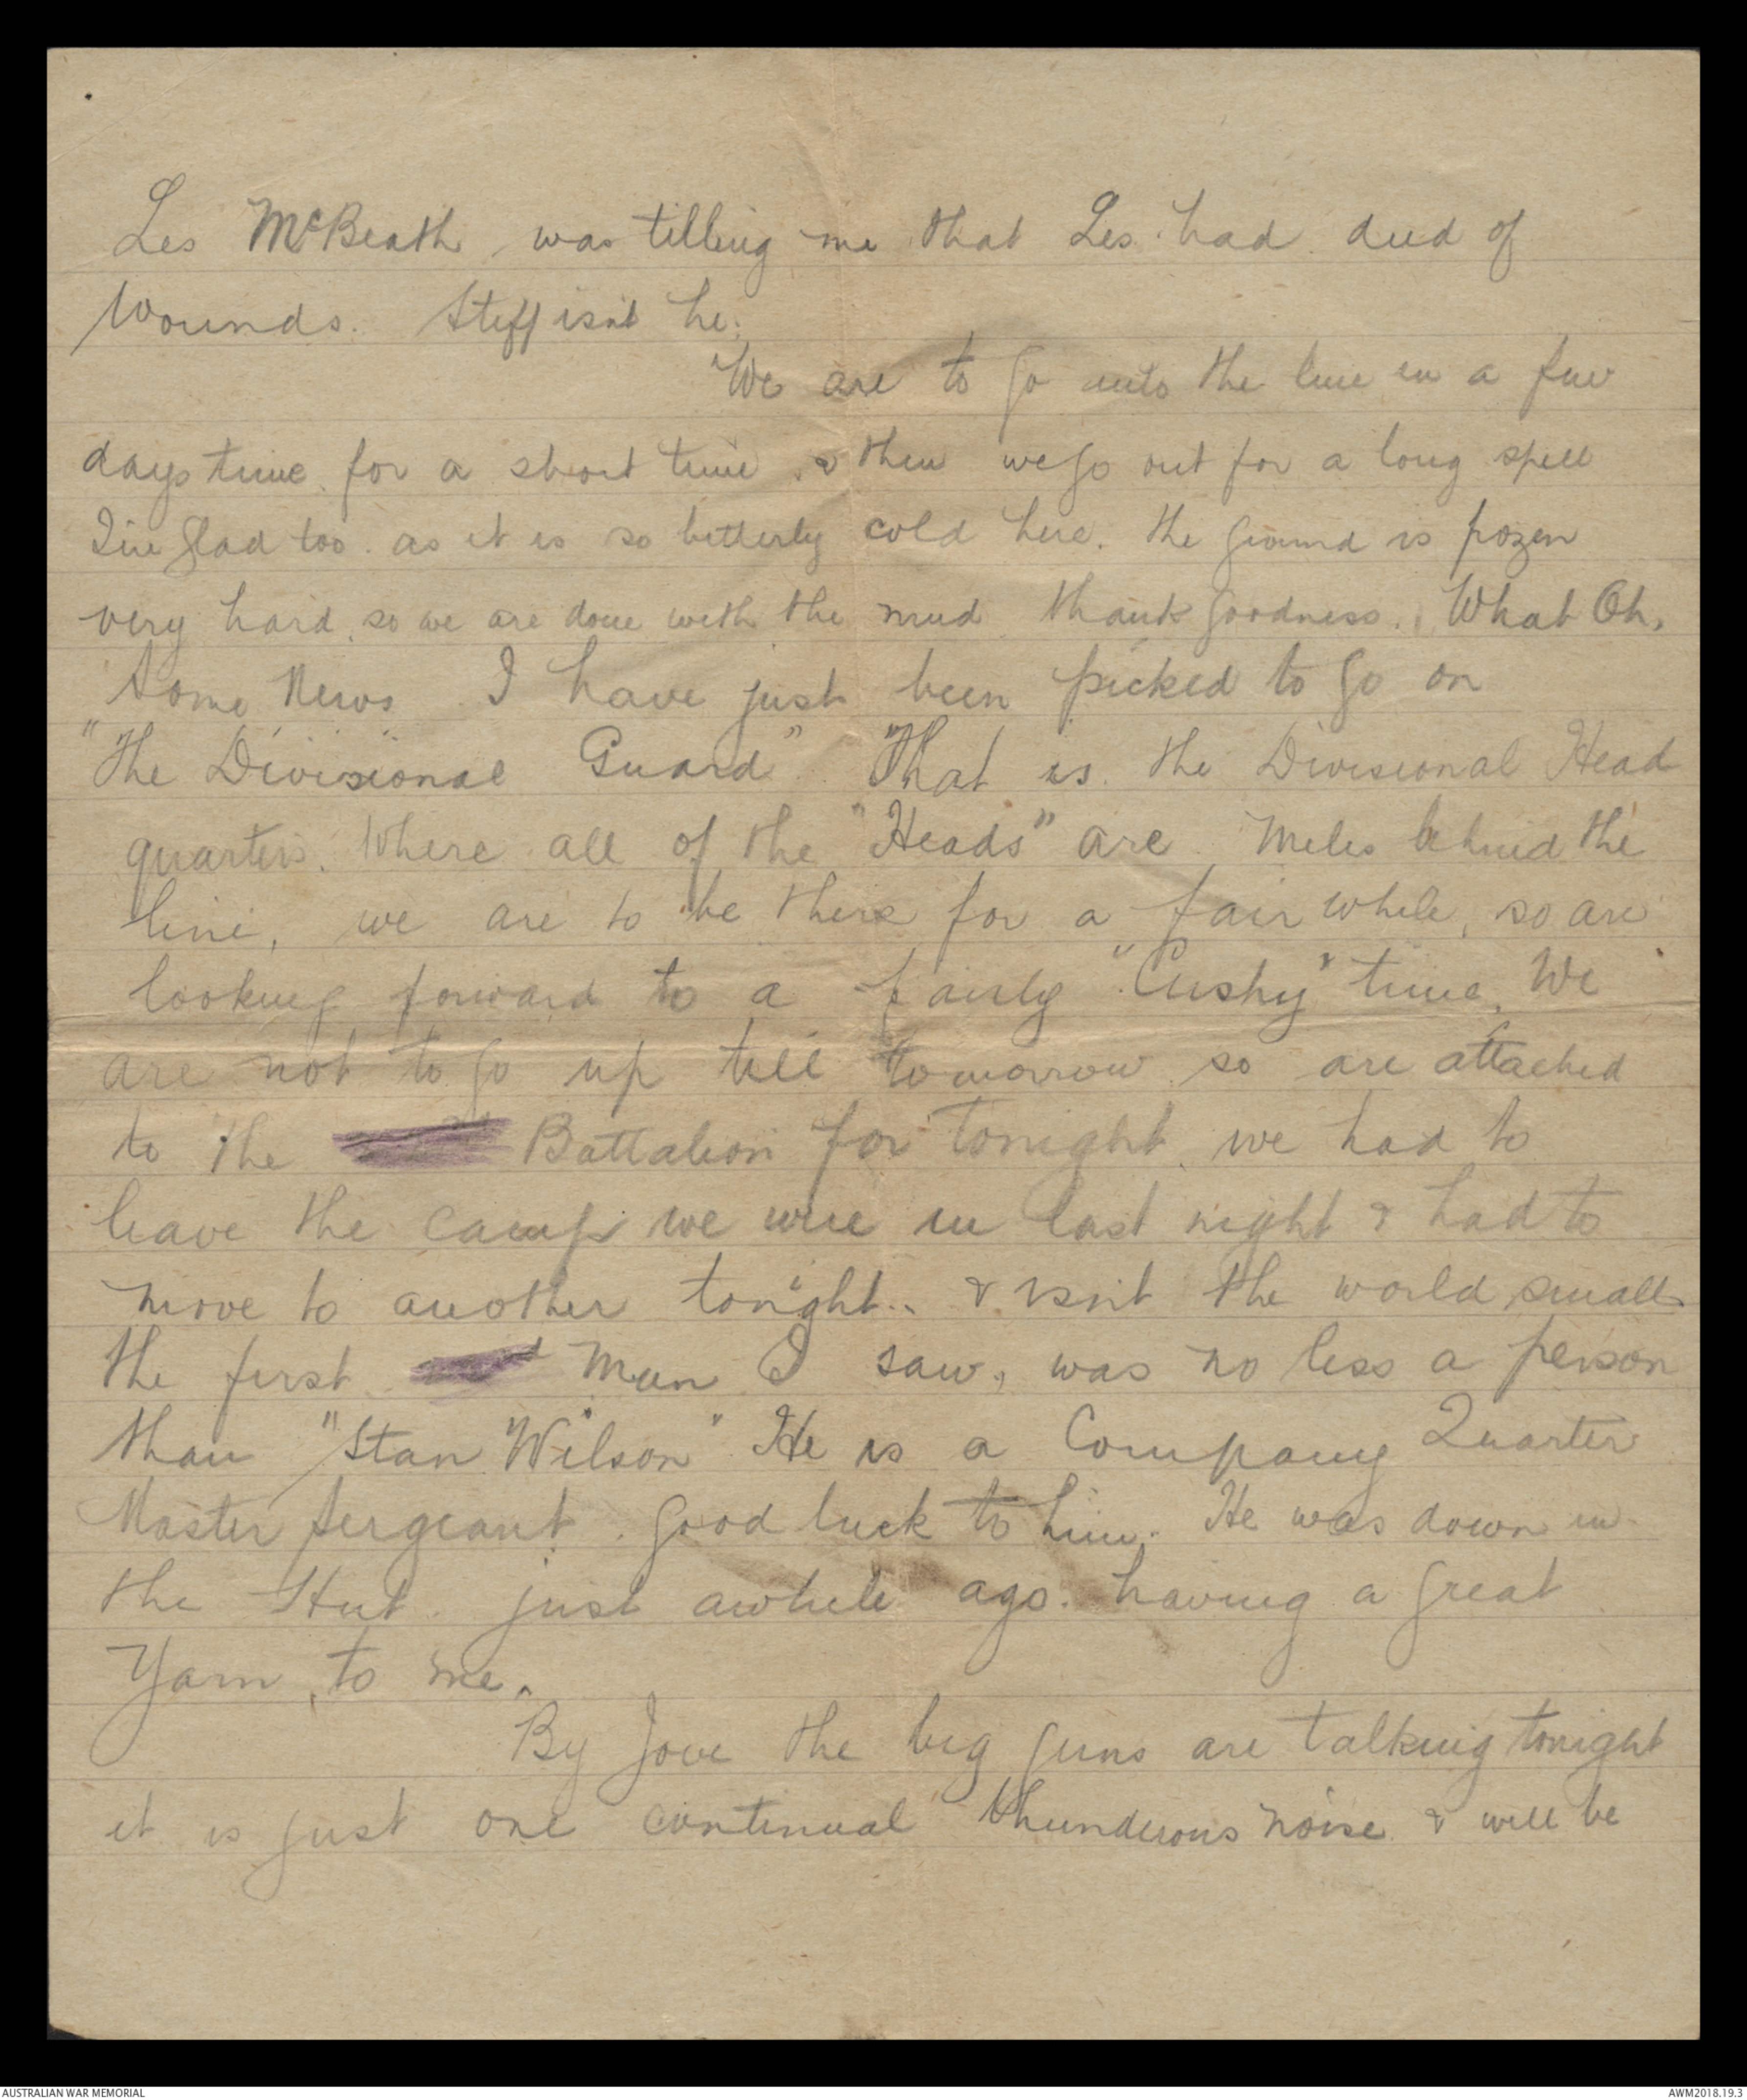 Les McBeath was telling me that Les had died of
Wounds. Stiff isn't he.
We are to go into the line in a few
days time for a short time & then we go out for a long spell
I'm glad too as it is so bitterly cold here. the ground is frozen
very hard, so we are done with the mud thank goodness. What Oh,
Some News I have just been picked to go on
"The Divisional Guard" That is the Divisional Head
quarters. Where all of the "Heads" are. Miles behind the
line, we are to be there for a fair while, so are
looking forward to a fairly "Cushy" time, We
are not to go up till tomorrow so are attached
to the Battalion for tonight we had to
leave the camp we were in last night & had to
move to another tonight.. & isn't the world small
the first Man I saw, was no less a person
than "Stan Wilson" He is a Company Quarter
Master Sergeant. Good luck to him. He was down in
the Hut just awhile ago. having a great
Yarn to me.
By Jove the big guns are talking tonight
it is just one continual thunderous noise & will be
AUSTRALIAN WAR MEMORIAL
AWM2018.19.3